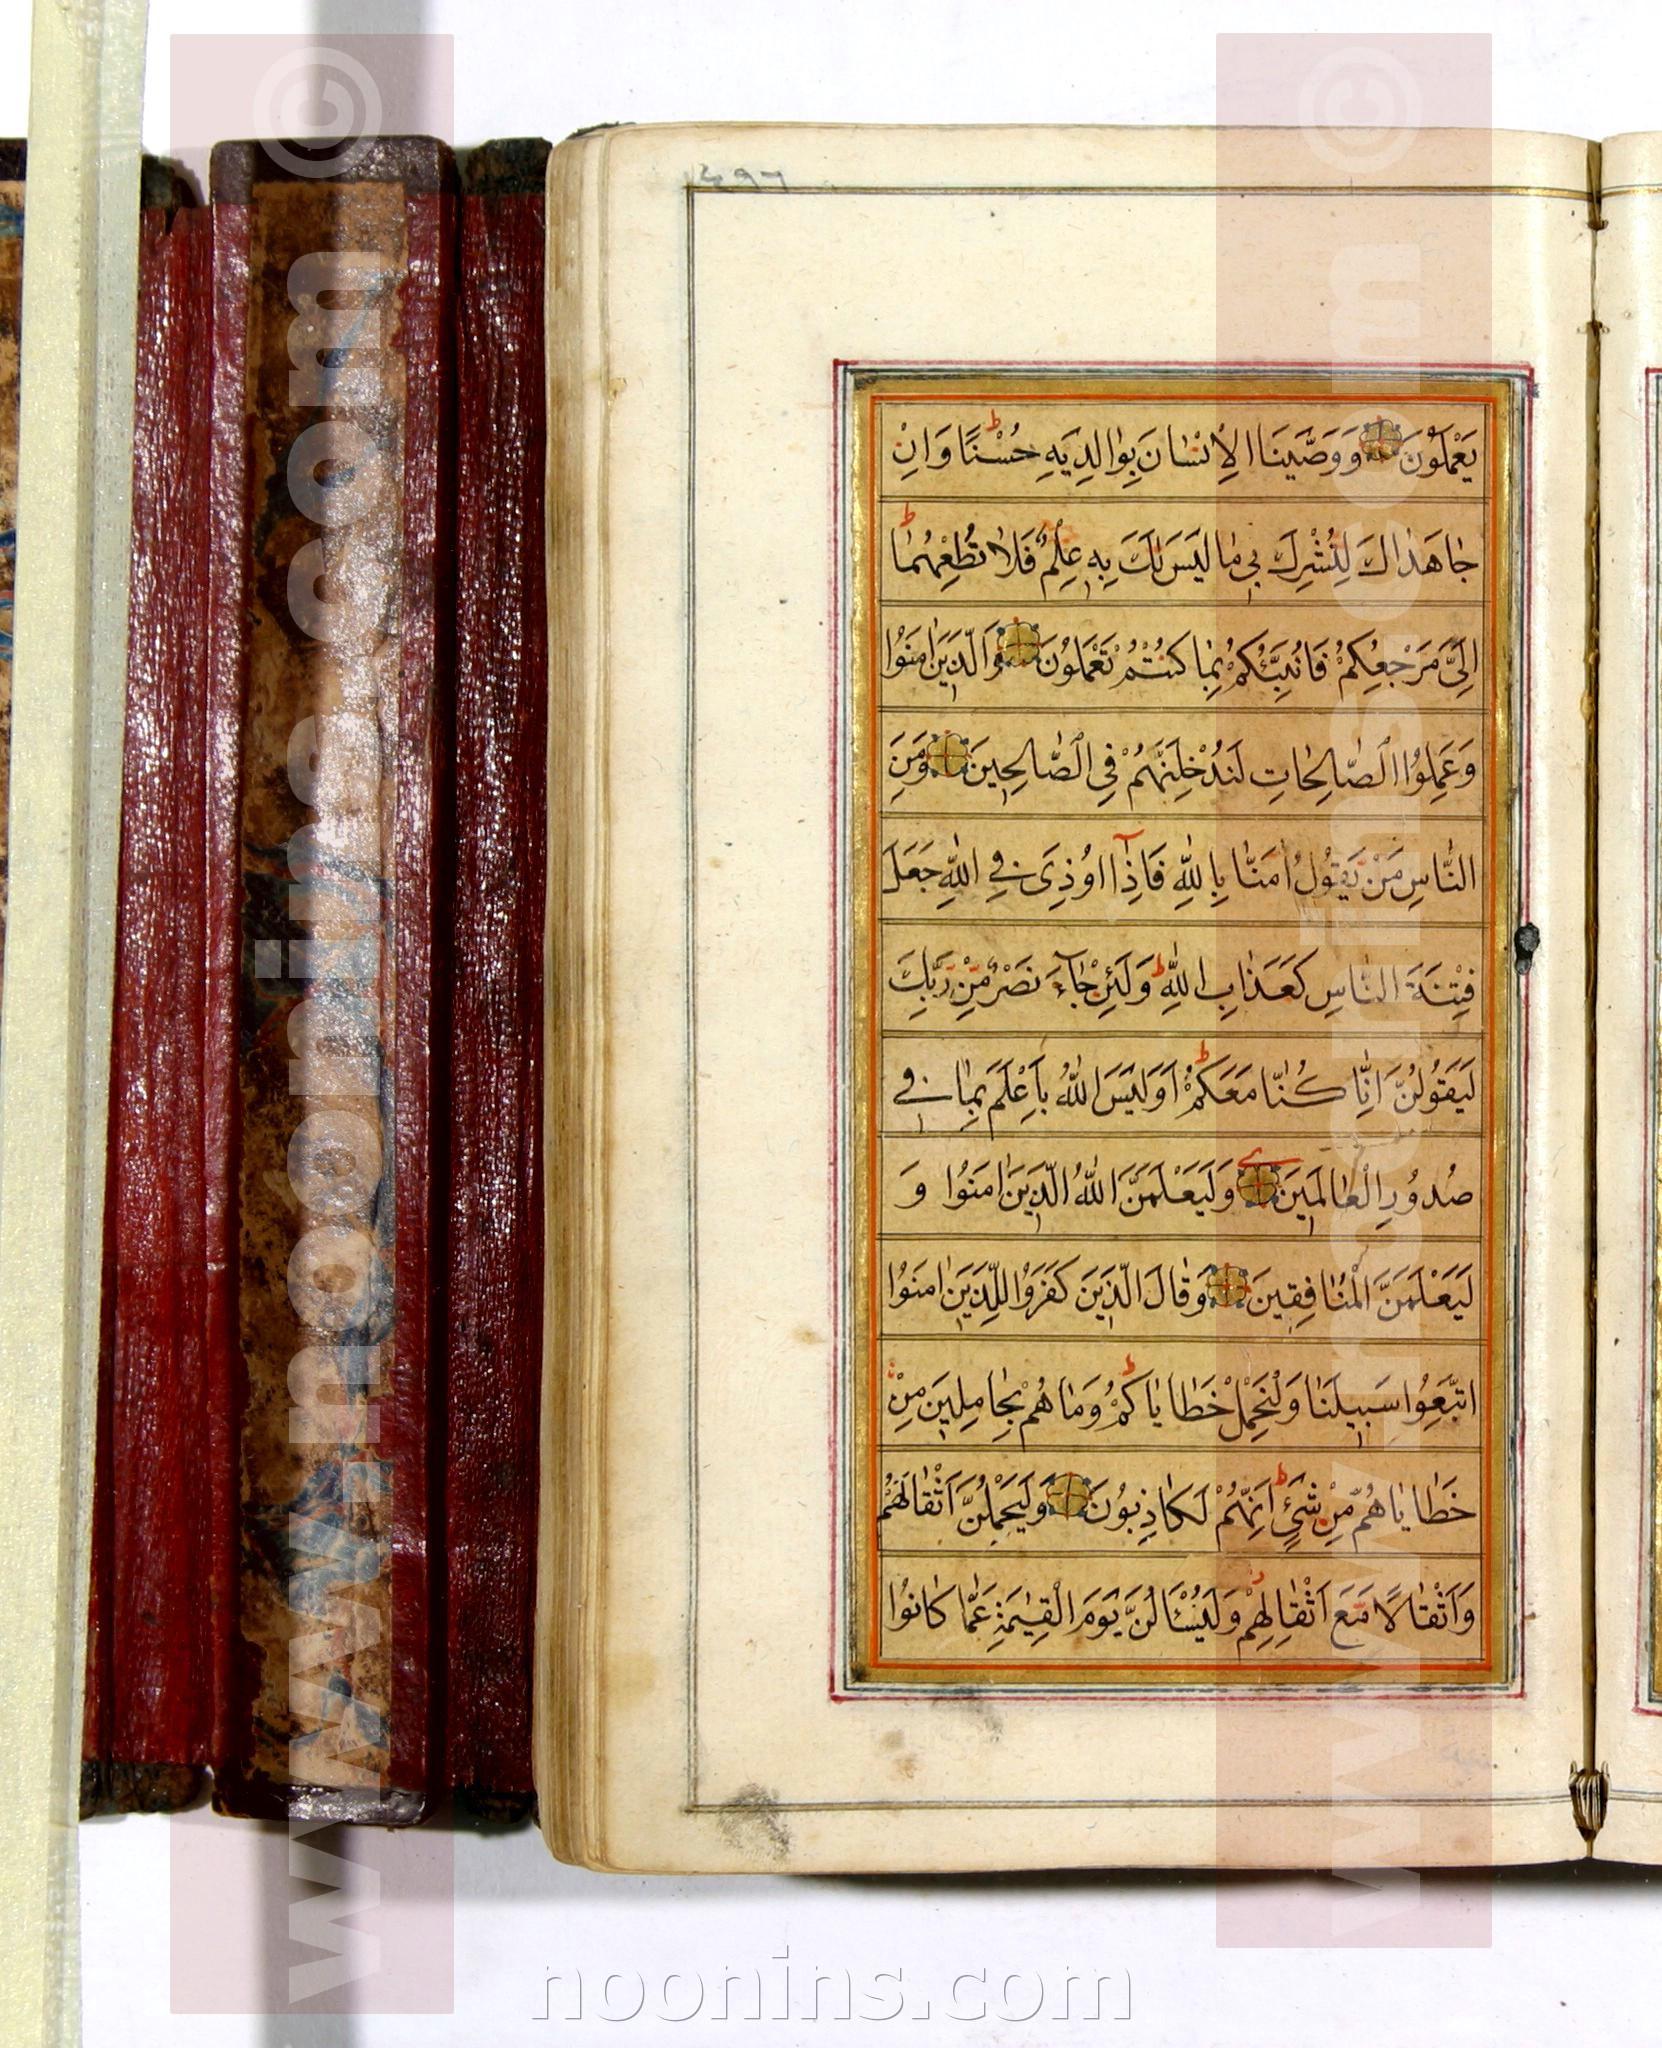 يَعْمَلُونَ وَوَصَّيْنَا الْاِنْسَانَ بِوَالِدَيْهِ حُسْنًا وَاِنْ
جَاهَدَاكَ لِتُشْرِكَ بِي مَا لَيْسَ لَكَ بِهِ عِلْمٌ فَلَا تُطِعْهُمَا
اِلَيَّ مَرْجِعُكُمْ فَاُنَبِّئُكُمْ بِمَا كُنْتُمْ تَعْمَلُونَ وَالَّذِينَ اٰمَنُوا
وَعَمِلُوا الصَّالِحَاتِ لَنُدْخِلَنَّهُمْ فِي الصَّالِحِينَ وَمِنَ
النَّاسِ مَنْ يَقُولُ اٰمَنَّا بِاللّٰهِ فَاِذَا اُوذِيَ فِي اللّٰهِ جَعَلَ
فِتْنَةَ النَّاسِ كَعَذَابِ اللّٰهِ وَلَئِنْ جَآءَ نَصْرٌ مِنْ رَبِّكَ
لَيَقُولُنَّ اِنَّا كُنَّا مَعَكُمْ اَوَلَيْسَ اللّٰهُ بِاَعْلَمَ بِمَا فِي
صُدُورِ الْعَالَمِينَ وَلَيَعْلَمَنَّ اللّٰهُ الَّذِينَ اٰمَنُوا وَ
لَيَعْلَمَنَّ الْمُنَافِقِينَ وَقَالَ الَّذِينَ كَفَرُوا لِلَّذِينَ اٰمَنُوا
اتَّبِعُوا سَبِيلَنَا وَلْنَحْمِلْ خَطَايَاكُمْ وَمَا هُمْ بِحَامِلِينَ مِنْ
خَطَايَاهُمْ مِنْ شَيْءٍ اِنَّهُمْ لَكَاذِبُونَ وَلَيَحْمِلُنَّ اَثْقَالَهُمْ
وَاَثْقَالًا مَعَ اَثْقَالِهِمْ وَلَيُسْئَلُنَّ يَوْمَ الْقِيٰمَةِ عَمَّا كَانُوا
www.noonins.com ©
www.noonins.com ©
noonins.com